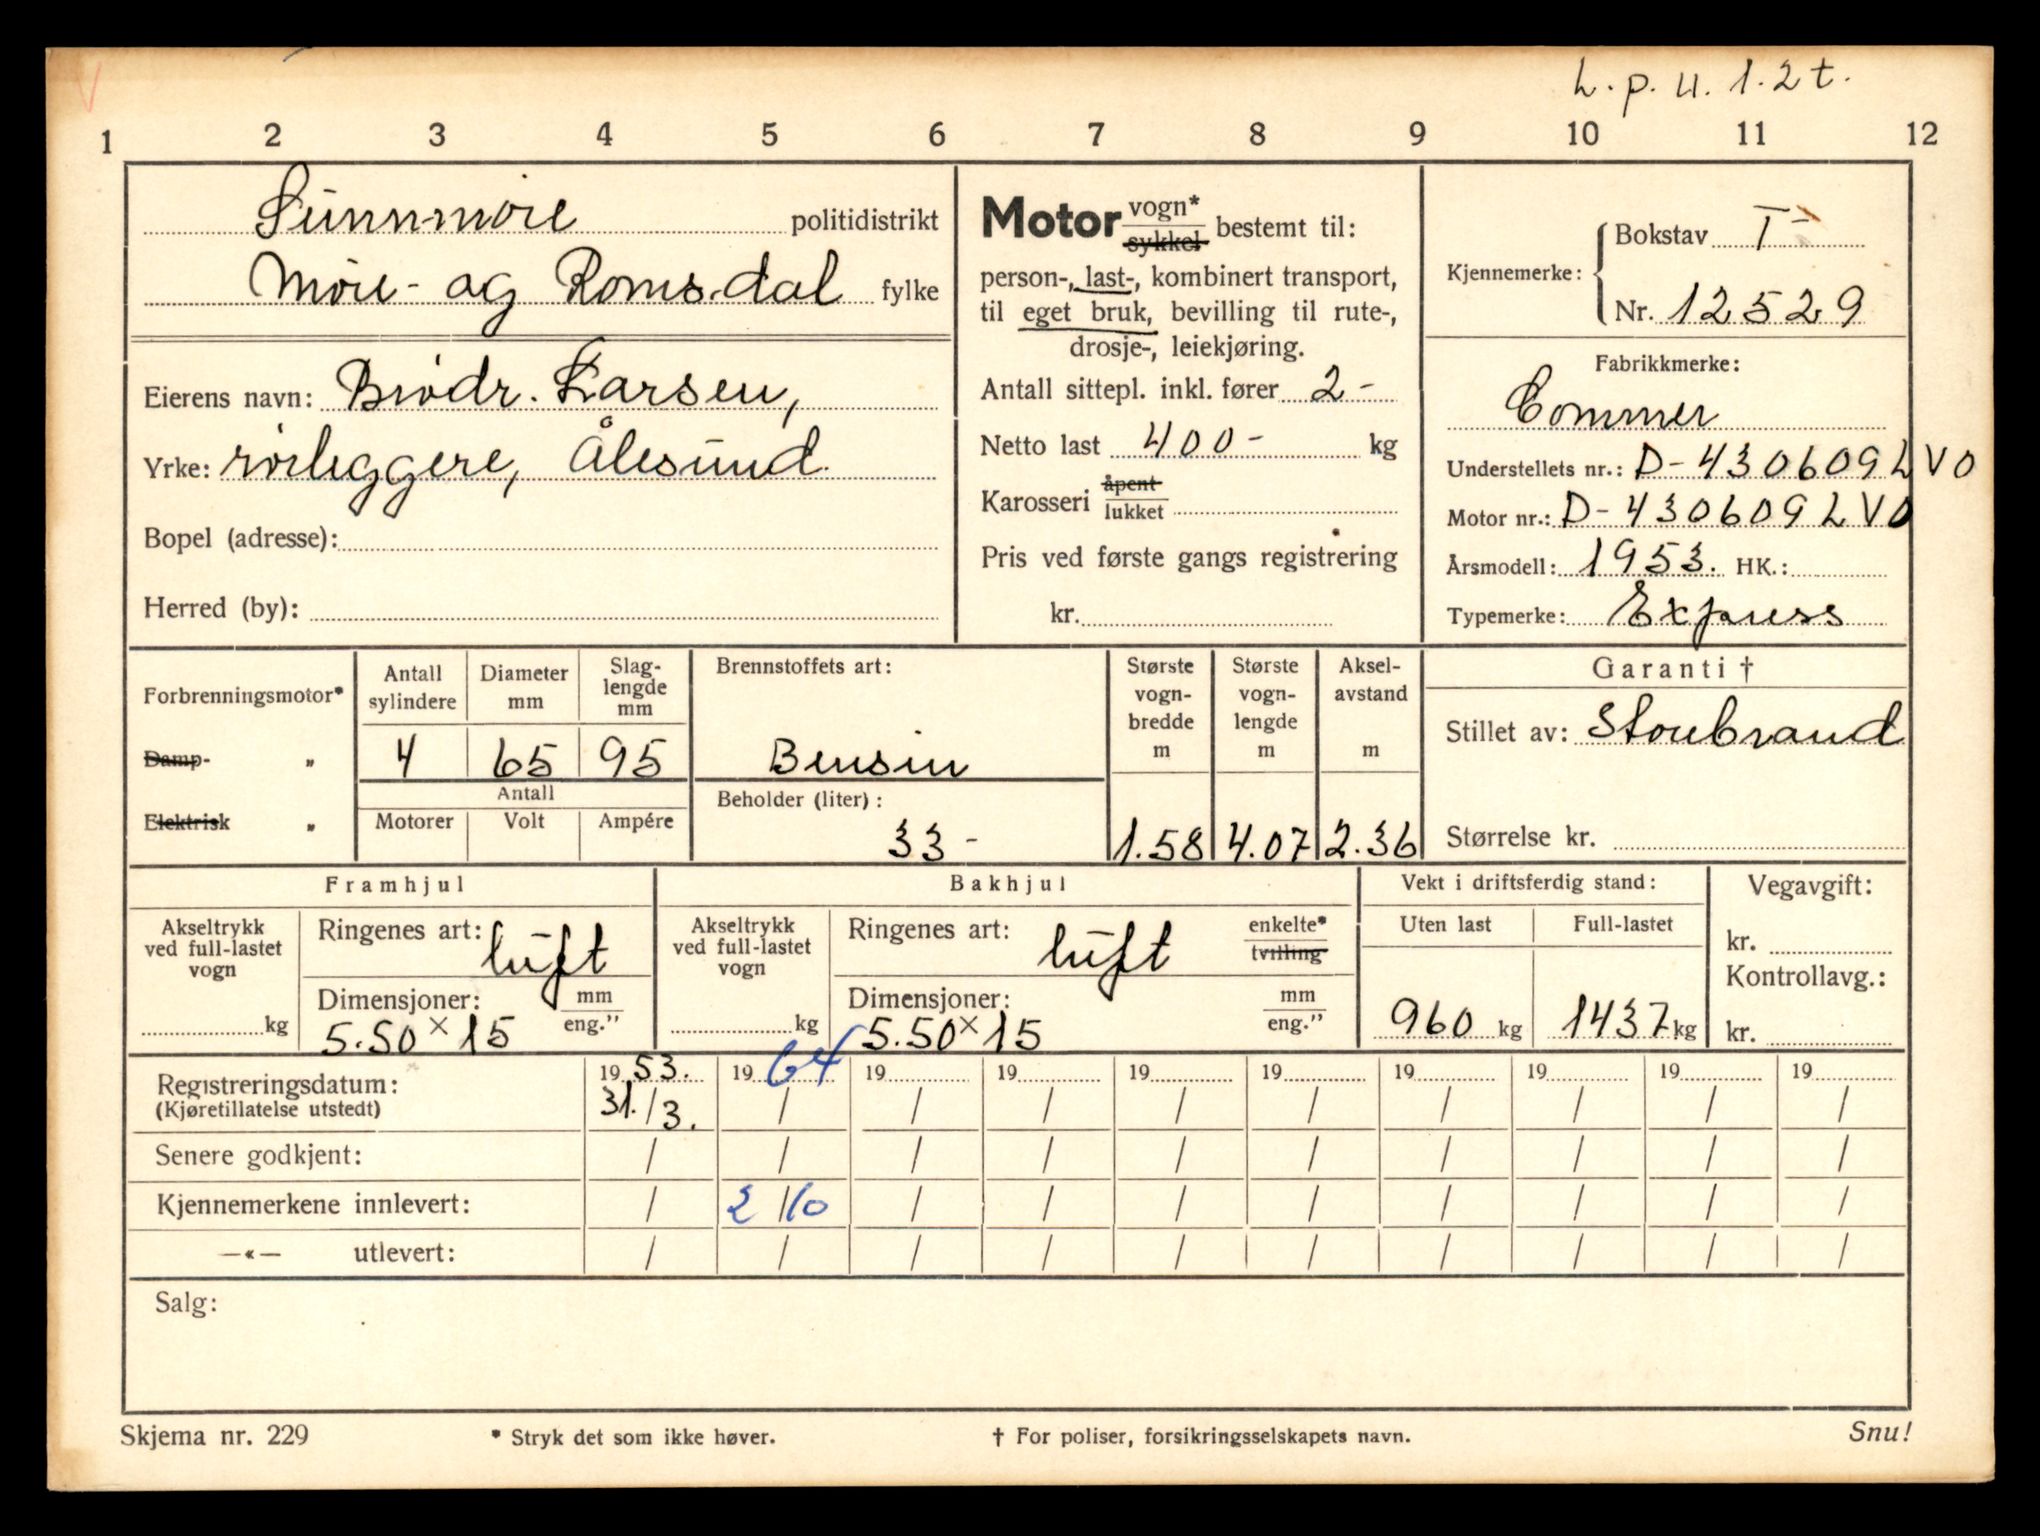 L.p.u. 1.2t.
1 2 3 4 5 6 7 8 9 10 11 12
Sunnmøre politidistrikt
Møre- og Romsdal fylke
Eierens navn: Brødr. Larsen,
Yrke: rørleggere, Ålesund.
Bopel (adresse):
Herred (by):
Motor vogn*
sykkel bestemt til:
person-, last-, kombinert transport,
til eget bruk, bevilling til rute-,
drosje-, leiekjøring.
Antall sittepl. inkl. fører 2-
Netto last 400- kg
Karosseri åpent
lukket
Pris ved første gangs registrering
kr.
Kjennemerke: Bokstav T-
Nr. 12529
Fabrikkmerke:
Commer
Understellets nr.: D-430609LVO
Motor nr.: D-430609LVO
Årsmodell: 1953. HK.:
Typemerke: Express
Forbrenningsmotor*
Damp- „
Elektrisk „
Antall sylindere
Diameter mm
Slag-
lengde
mm
4 65 95
Antall
Motorer Volt Ampére
Brennstoffets art:
Bensin
Beholder (liter):
33-
Største
vogn-
bredde
m
1.58
Største
vogn-
lengde
m
4.07
Aksel-
avstand
m
2.36
Garanti †
Stillet av: Storebrand
Størrelse kr.
Framhjul
Akseltrykk
ved full-lastet
vogn
kg
Ringenes art: luft
Dimensjoner: mm
eng."
5.50×15
Bakhjul
Akseltrykk
ved full-lastet
vogn
kg
Ringenes art: luft enkelte*
tvilling
Dimensjoner: mm
eng."
5.50×15
Vekt i driftsferdig stand:
Uten last Full-lastet
960 kg 1437 kg
Vegavgift:
kr.
Kontrollavg.:
kr.
Registreringsdatum: 1953. 1964 19 19 19 19 19 19 19 19
(Kjøretillatelse utstedt) 31./3. / / / / / / / / /
Senere godkjent: / / / / / / / / / /
Kjennemerkene innlevert: / 2/10 / / / / / / / /
—«— utlevert: / / / / / / / / / /
Salg:
Skjema nr. 229 * Stryk det som ikke høver. † For poliser, forsikringsselskapets navn. Snu!